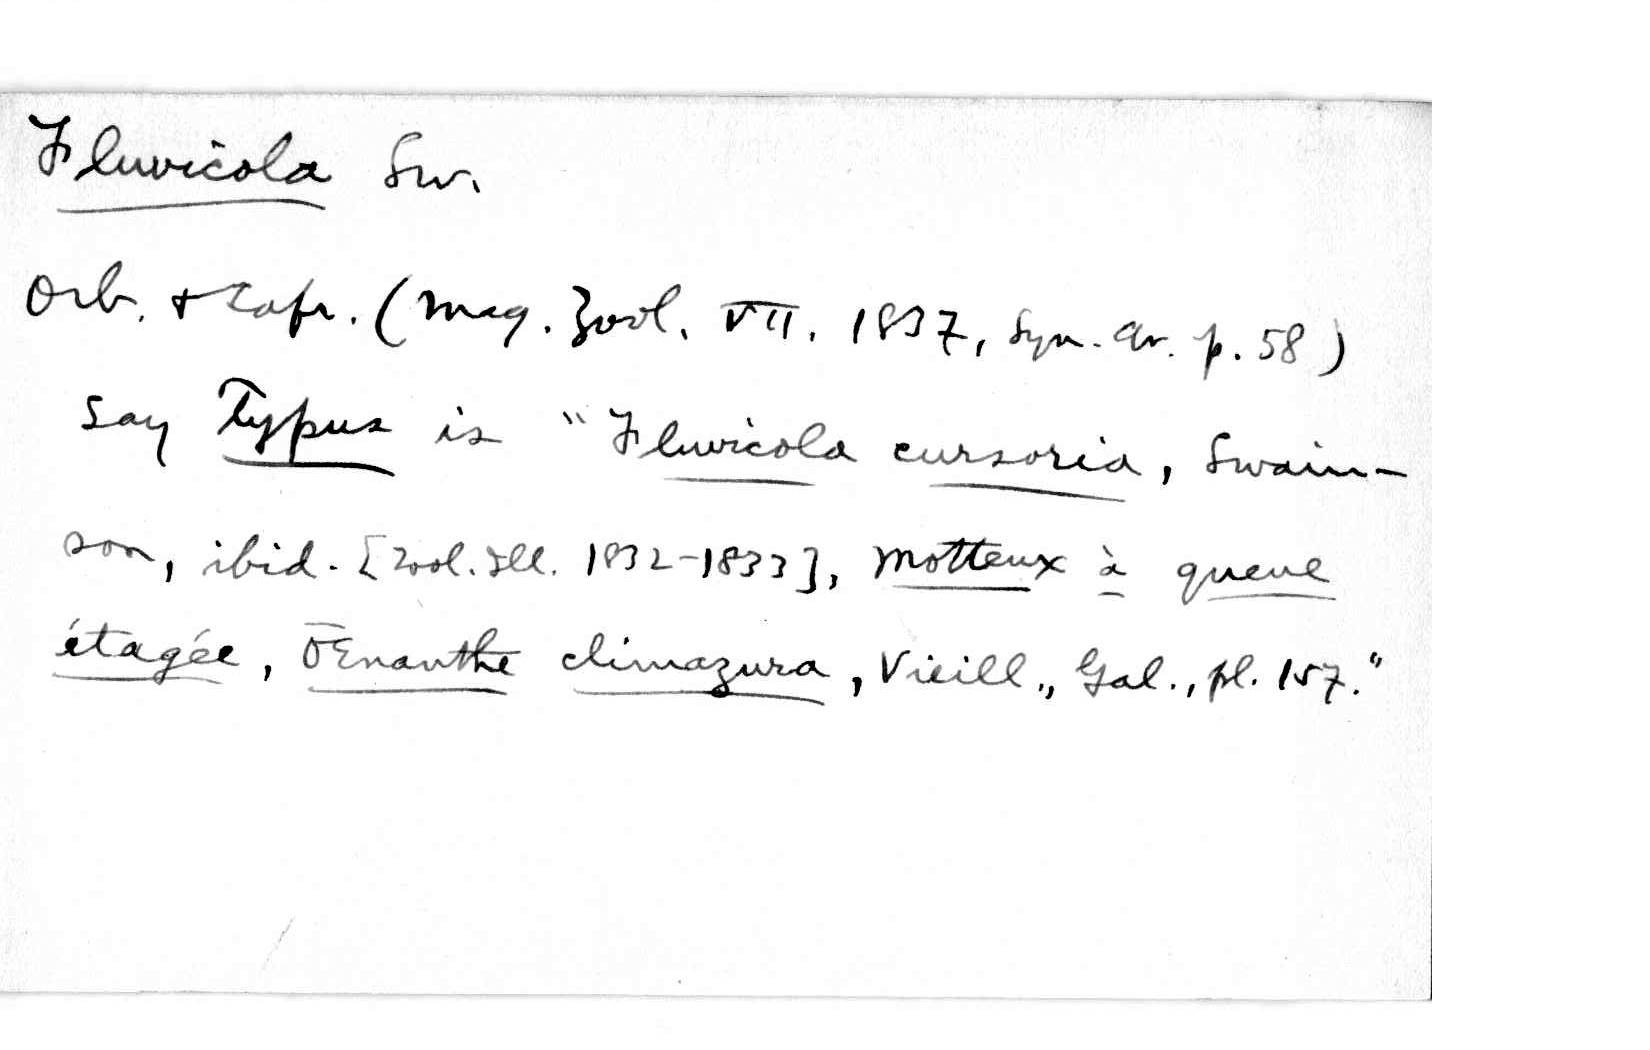 Fluvicola Sw.
Orb. & Lafr. (Mag. Zool. VII. 1837, Syn. Av. p. 58)
say Typus is "Fluvicola cursoria, Swain-
son, ibid. [Zool. Ill. 1832-1833], Motteux à queue
étagée, OEnanthe climazura, Vieill., Gal., pl. 157."